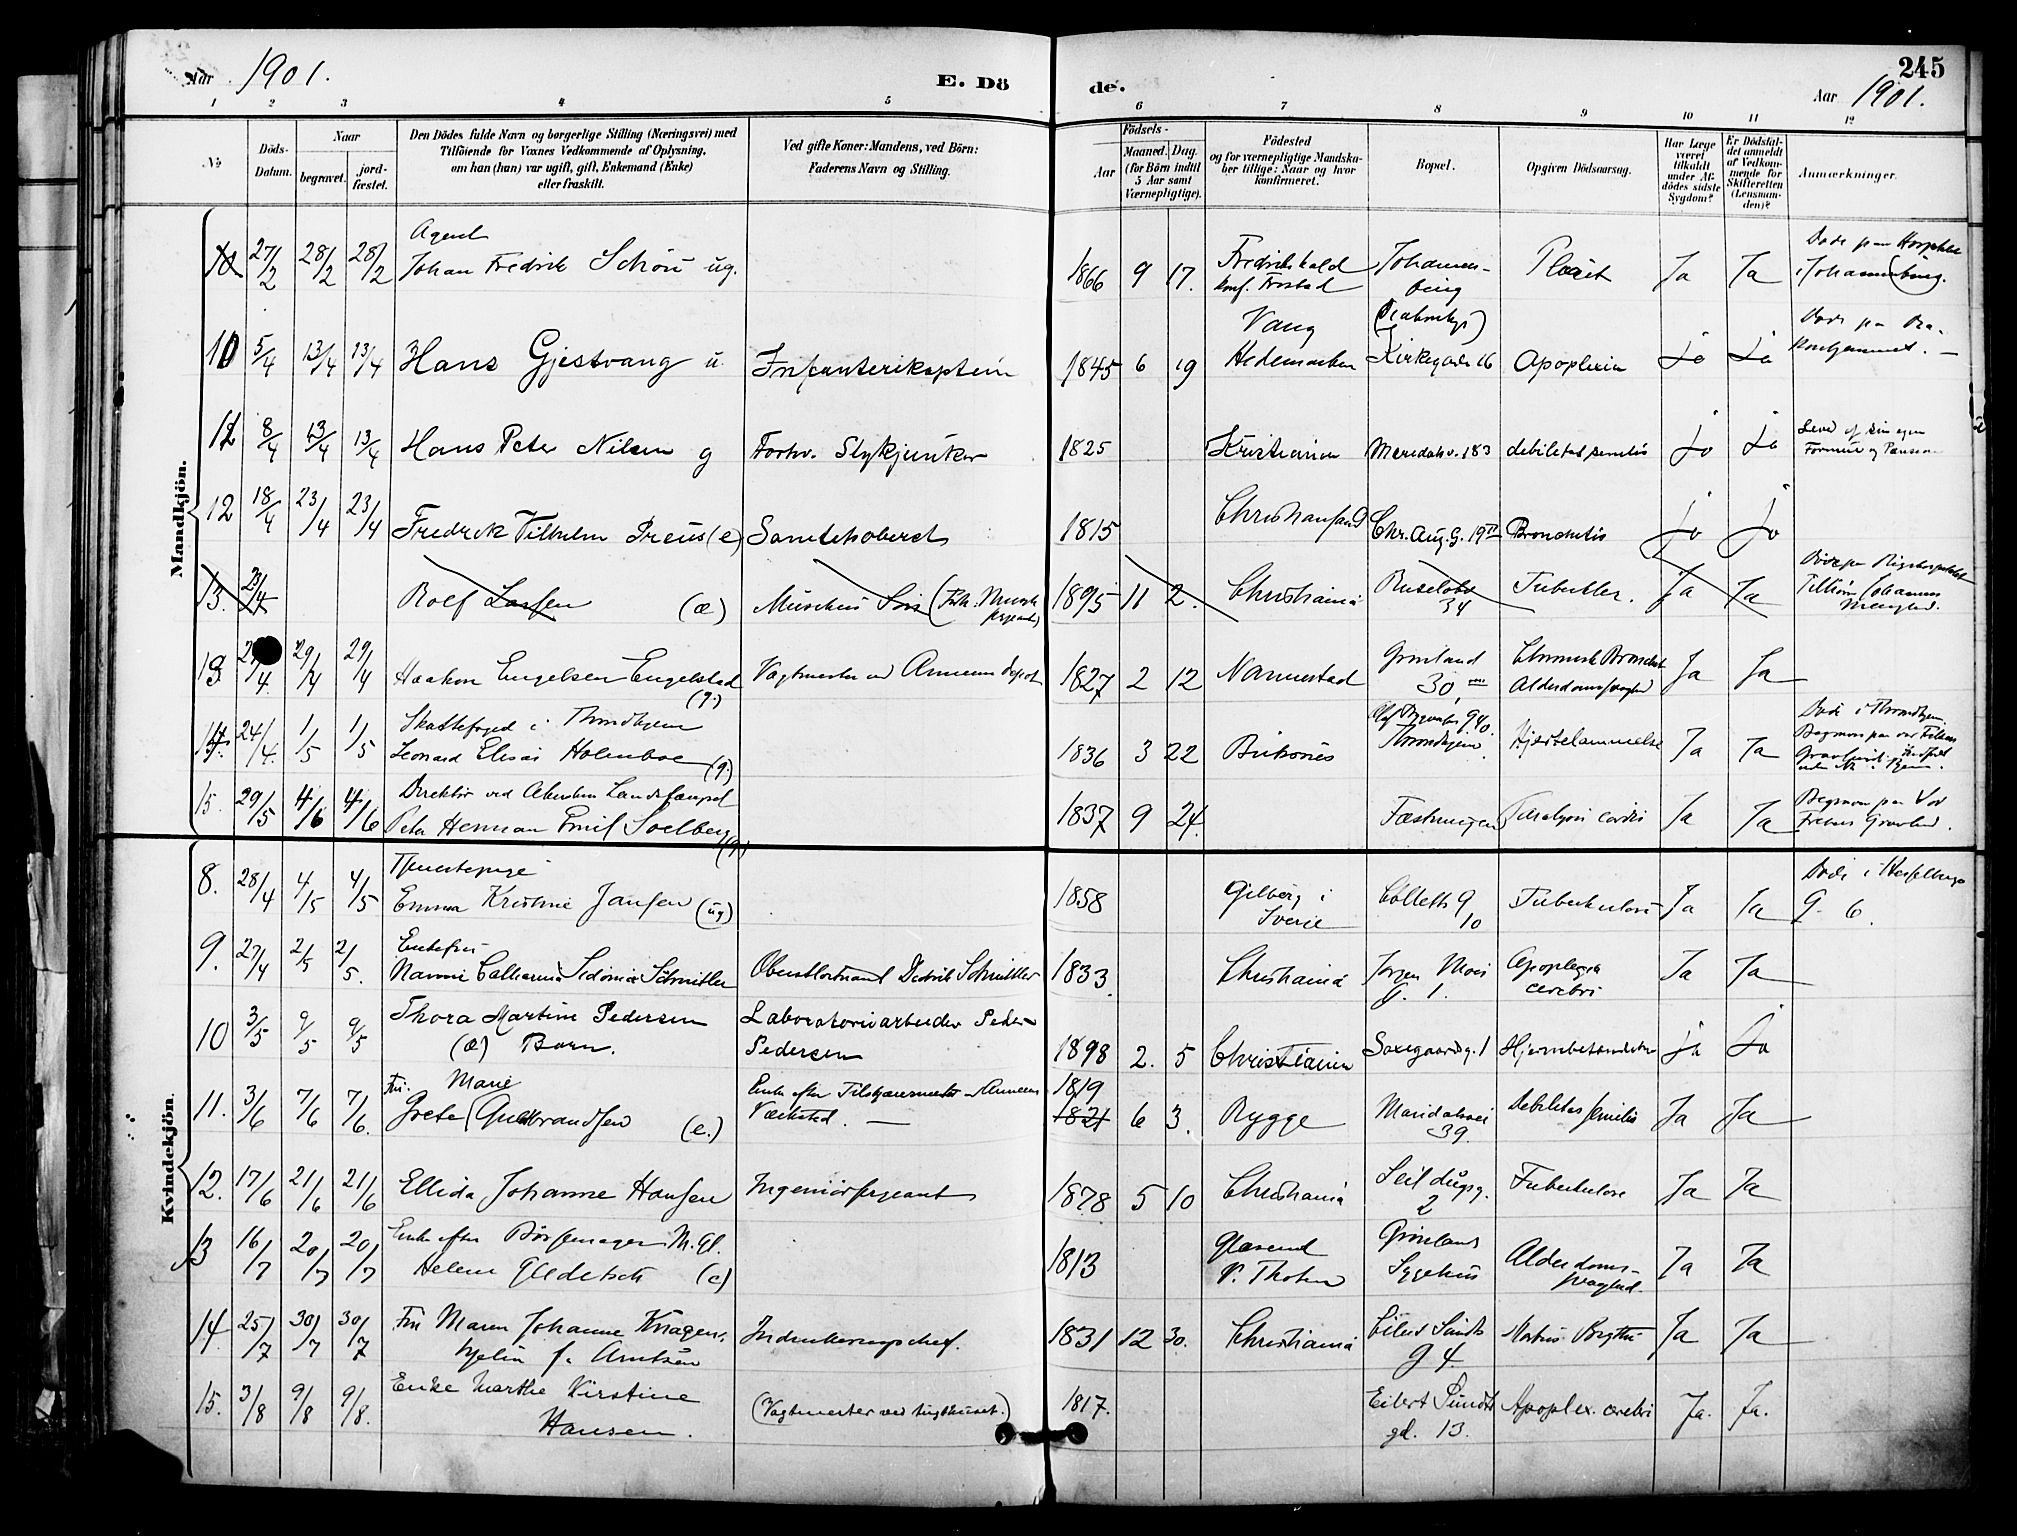 Aar 1901.
E. Döde.
245
Aar 1901.
1 2 3 4 5 6 7 8 9 10 11 12
№
Döds-Datum.
Naar
begravet.
jord-fæstet.
Den Dödes fulde Navn og borgerlige Stilling (Næringsvei) med
Tilföiende for Voxnes Vedkommende af Oplysning,
om han (hun) var ugift, gift, Enkemand (Enke)
eller fraskilt.
Ved gifte Koner: Mandens, ved Börn:
Faderens Navn og Stilling.
Födsels-
Aar
Maaned. Dag.
(for Börn indtil
5 Aar samt
Værnepligtige).
Födested
og for værnepligtige Mandska-
ber tillige: Naar og hvor
konfirmeret.
Bopæl.
Opgiven Dödsaarsag.
Har Læge
været
tilkaldt
under Af-
dödes sidste
Sygdom?
Er Dödsfal-
det anmeldt
af Vedkom-
mende for
Skifteretten
(Lensman-
den)?
Anmærkninger.
Mandkjön.
10 27/2 28/2 28/2 Agent
Johan Fredrik Schou ug. 1866 9 17. Fredrikshald
konf. Johannes-
burg Ja Ja Døde paa Hospital
i Johannesburg.
10 5/4 13/4 13/4 Hans Gjestvang u. Infanterikaptein 1845 6 19 Vang
Hedemarken Kirkegaden 16 Apoplexia Jo Ja Døde paa
11 8/4 13/4 13/4 Hans Peter Nilsen g Forhv. Stykjunker 1825 Kristiania Maridalsv. 183 debilitas senilis Jo Jo Leved af sin egen
Formue og Pension
12 18/4 23/4 23/4 Fredrik Vilhelm Preus (e) Sanitetsoberst 1815 Christiansand Chr. Aug. G. 19 Bronchitis Jo Jo
13. 23/4 Rolf Larsen (æ) Musikus 1895 11 2. Christiania 34 Tuberkler. Ja Ja Døde paa Rigshospitalet
13 29/4 29/4 Haakon Engelsen Engelstad
(g.) Vagtmester ved Armeens depot 1827 2 12 Nannestad Grønland
30 Chronisk Bronchit
Alderdomssvaghed Ja Ja
14. 24/4. 1/5 1/5 Skattefoged i Throndhjem
Leonard Elisæi Holmboe (g.) 1836 3 22 Throndhjem Hjertelammelse Ja Ja Døde i Throndhjem.
15. 29/5 4/6 4/6 Direktør ved Akershus Landsfængsel
Peter Herman Emil Soelberg
(g.) 1837 9 24. Fæstningen Paralysis cordis Ja Ja Begraven paa Vor
Frelsers Gravlund.
Kvindekjön.
8. 28/4 4/5 4/5 Tjenestepige
Emma Kristine Jansen (ug) 1858 Gilberg i
Sverie Colletts G
10 Tuberkulose Ja Ja Døde i Hesselbergs
G. 6.
9. 27/4 2/5 2/5. Enkefru
Nannie Catharina Sidonia Schnitler Oberstløitnant Didrik Schnitler 1833 Christiania Jørgen Moes
G. 1. Apoplexia
cerebri Ja Ja
10 3/5 9/5 9/5 Thora Martine Pedersen
(æ) Barn. Laboratoriearbeider Peder
Pedersen 1898 2. 5 Christiania Saxegaardsg. 1 Hjernebetændelse Ja Ja
11. 3/6 7/6 7/6. Fru. Marie
Grete Gudbrandsen (e.) Enke efter Tilskjærermester Armeens
Værksted. — 1819
1821 6 3. Rygge Maridalsvei
39 Debilitas senilis Ja Ja
12. 17/6 21/6 21/6 Ellida Johanne Hansen Ingeniørsergeant 1878 5 10 Christiania Seildugsg.
2 Tuberkulose Ja Ja
13 16/7 20/7 20/7 Enke efter Børsemager M. Gl.
Helene Gleditsch (e) 1813 V. Thoten Grønlands
Sygehus Alderdoms-
svaghed. Ja Ja
14. 25/7 30/7 30/7 Fru Maren Johanne Knagen-
hjelm f. Arntsen Indrulleringschef. 1831 12 30. Christiania Eilert Sundts
G 4. Morbus Brigthii Ja Ja
15. 3/8 9/8 9/8. Enke Marthe Kirstine
Hansen. (Vagtmester ved tugthuset.) 1817. Eilert Sundts
gd. 13. Apoplex. cerebri Ja. Ja.